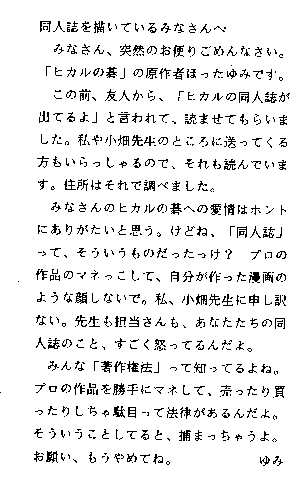 同人誌を描いているみなさんへ
　みなさん、突然のお便りごめんなさい。
「ヒカルの碁」の原作者ほったゆみです。
　この前、友人から、「ヒカルの同人誌が
出てるよ」と言われて、読ませてもらいま
した。私や小畑先生のところに送ってくる
方もいらっしゃるので、それも読んでいま
す。住所はそれで調べました。
　みなさんのヒカルの碁への愛情はホント
にありがたいと思う。けどね、「同人誌」
って、そういうものだったっけ？　プロの
作品のマネっこして、自分が作った漫画の
ような顔しないで。私、小畑先生に申し訳
ない。先生も担当さんも、あなたたちの同
人誌のこと、すごく怒ってるんだよ。
　みんな「著作権法」って知ってるよね。
プロの作品を勝手にマネして、売ったり買
ったりしちゃ駄目って法律があるんだよ。
そういうことしてると、捕まっちゃうよ。
お願い、もうやめてね。　　　　　ゆみ